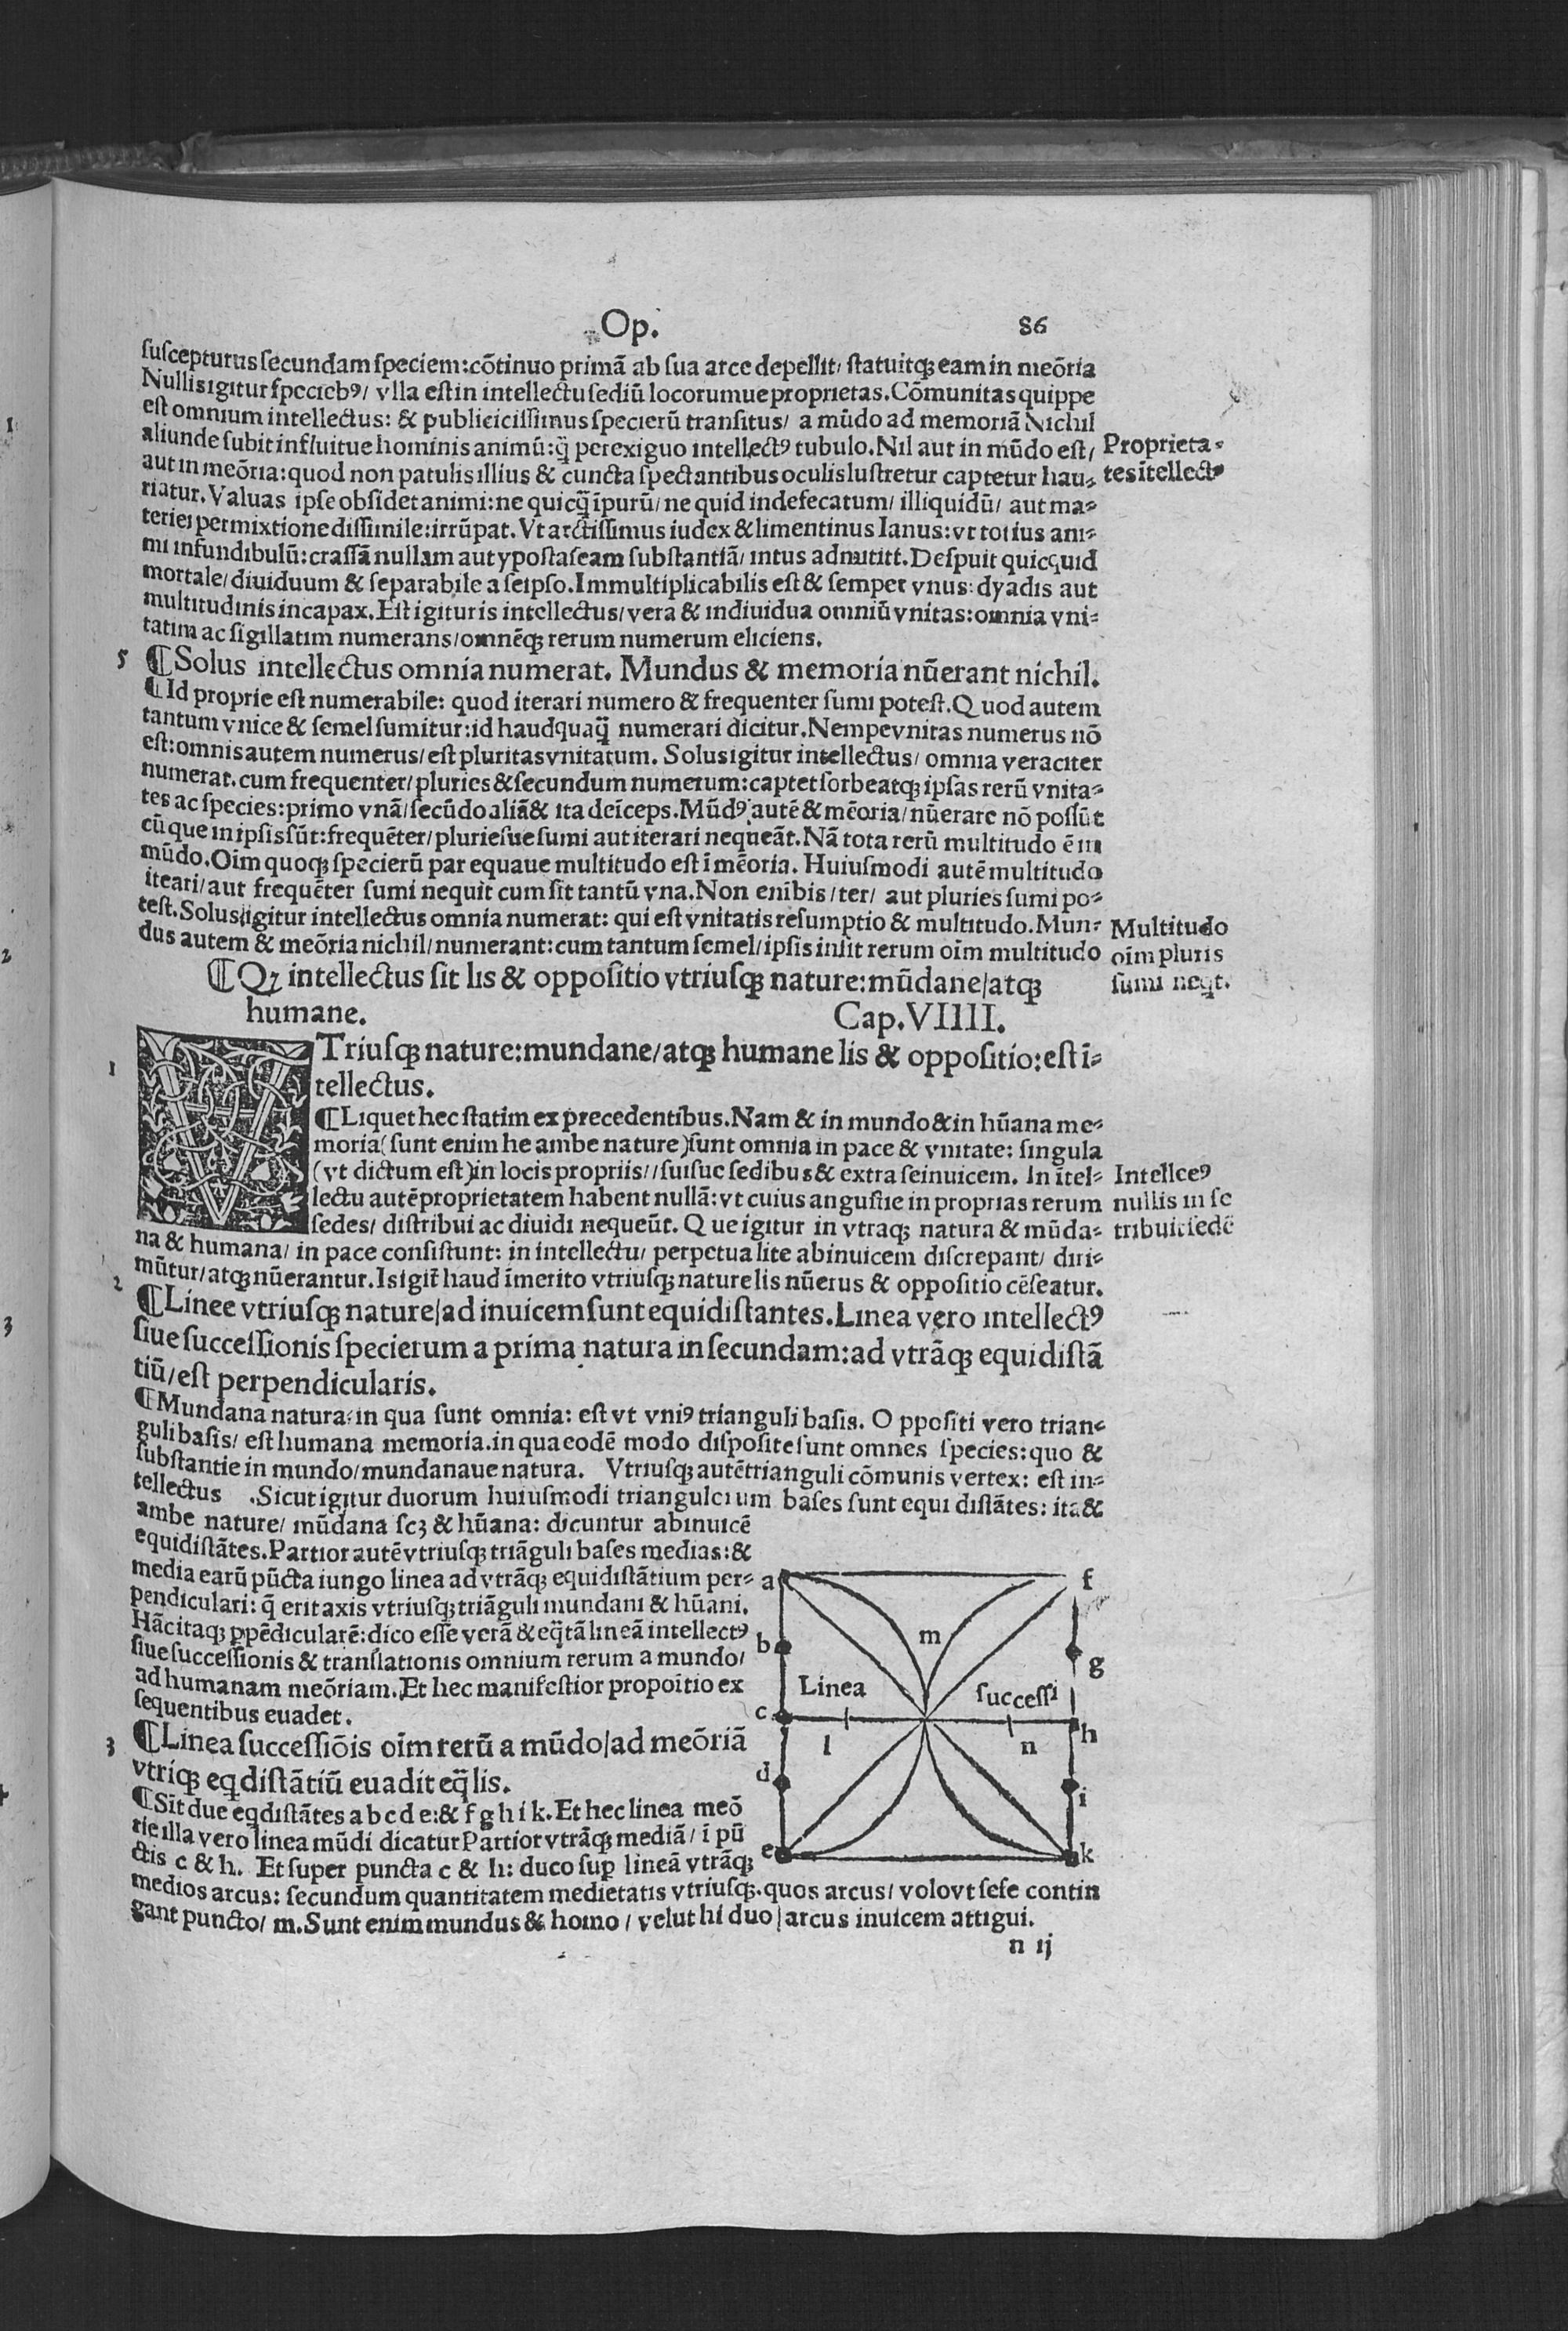 Op.
86
suscepturus secundam speciem: cõtinuo primã ab sua arce depellit/ statuitqȝ eam in meõria
Nullis igitur speciebꝰ/ vlla est in intellectu sediũ locorumue proprietas. Cõmunitas quippe
est omnium intellectus: & publicicissimus specierũ transitus/ a mũdo ad memoriã Nichil
aliunde subit influitue hominis animũ: q̃ perexiguo intellectꝰ tubulo. Nil aut in mũdo est/
aut in meõria: quod non patulis illius & cuncta spectantibus oculis lustretur captetur hau-
riatur. Valuas ipse obsidet animi: ne quicq̃ ĩpurũ/ ne quid indefecatum/ illiquidũ/ aut ma-
teriei permixtione dissimile: irrũpat. Vt arctissimus iudex & limentinus Ianus: vt totius ani-
mi infundibulũ: crassã nullam aut ypostaseam substantiã/ intus admittit. Despuit quicquid
mortale/ diuiduum & separabile a seipso. Immultiplicabilis est & semper vnus: dyadis aut
multitudinis incapax. Est igitur is intellectus/ vera & indiuidua omniũ vnitas: omnia vni-
tatim ac sigillatim numerans/ omnẽqȝ rerum numerum eliciens.
Proprieta-
tes ĩtellectꝰ
5 ¶Solus intellectus omnia numerat. Mundus & memoria nũerant nichil.
¶Id proprie est numerabile: quod iterari numero & frequenter sumi potest. Quod autem
tantum vnice & semel sumitur: id haudquaq̃ numerari dicitur. Nempe vnitas numerus nõ
est: omnis autem numerus/ est pluritas vnitatum. Solus igitur intellectus/ omnia veraciter
numerat. cum frequenter/ pluries & secundum numerum: captet sorbeatqȝ ipsas rerũ vnita-
tes ac species: primo vnã/ secũdo aliã & ita deĩceps. Mũdꝰ autẽ & mẽoria/ nũerare nõ possũt
cũ que in ipsis sũt: frequẽter/ pluriesue sumi aut iterari nequeãt. Nã tota rerũ multitudo ẽ in
mũdo. Oĩm quoqȝ specierũ par equaue multitudo est ĩ mẽoria. Huiusmodi autẽ multitudo
iteari/ aut frequẽter sumi nequit cum sit tantũ vna. Non enĩ bis/ ter/ aut pluries sumi po-
test. Solus igitur intellectus omnia numerat: qui est vnitatis resumptio & multitudo. Mun-
dus autem & meõria nichil/ numerant: cum tantum semel/ ipsis insit rerum oĩm multitudo
Multitudo
oĩm pluris
sumi neqt.
¶Qȝ intellectus sit lis & oppositio vtriusqȝ nature: mũdane/ atqȝ
humane. Cap. VIIII.
1 VTriusqȝ nature: mundane/ atqȝ humane lis & oppositio: est ĩ-
tellectus.
¶Liquet hec statim ex precedentibus. Nam & in mundo & in hũana me-
moria (sunt enim he ambe nature) sunt omnia in pace & vnitate: singula
(vt dictum est) in locis propriis// suisue sedibus & extra seinuicem. In ĩtel-
lectu autẽ proprietatem habent nullã: vt cuius angustie in proprias rerum
sedes/ distribui ac diuidi nequeũt. Que igitur in vtraqȝ natura & mũda-
na & humana/ in pace consistunt: in intellectu/ perpetua lite abinuicem discrepant/ diri-
mũtur/ atqȝ nũerantur. Is igit̃ haud ĩmerito vtriusqȝ nature lis nũerus & oppositio cẽseatur.
Intellceꝰ
nullis in se
tribuit sedẽ
2 ¶Linee vtriusqȝ nature/ ad inuicem sunt equidistantes. Linea vero intellectꝰ
siue successionis specierum a prima natura in secundam: ad vtrãqȝ equidistã
tiũ/ est perpendicularis.
¶Mundana natura: in qua sunt omnia: est vt vniꝰ trianguli basis. Oppositi vero trian-
guli basis/ est humana memoria. in qua eodẽ modo disposite sunt omnes species: quo &
substantie in mundo/ mundanaue natura. Vtriusqȝ autẽ trianguli cõmunis vertex: est in-
tellectus . Sicut igitur duorum huiusmodi triangulorum bases sunt equi distãtes: ita &
ambe nature/ mũdana scȝ & hũana: dicuntur abinuicẽ
equidistãtes. Partior autẽ vtriusqȝ triãguli bases medias: &
media earũ pũcta iungo linea ad vtrãqȝ equidistãtium per-
pendiculari: q̃ erit axis vtriusqȝ triãguli mundani & hũani.
Hãc itaqȝ ppẽdicularẽ: dico esse verã & eq̃tã lineã intellectꝰ
siue successionis & translationis omnium rerum a mundo/
ad humanam meõriam. Et hec manifestior propoĩtio ex
sequentibus euadet.
3 ¶Linea successiõis oĩm rerũ a mũdo/ ad meõriã
vtriqȝ eqdistãtiũ euadit eq̃lis.
¶Sĩt due eqdistãtes a b c d e: & f g h i k. Et hec linea meõ
rie illa vero linea mũdi dicatur Partior vtrãqȝ mediã/ ĩ pũ
ctis c & h. Et super puncta c & h: duco sup lineã vtrãqȝ
medios arcus: secundum quantitatem medietatis vtriusqȝ. quos arcus/ volo vt sese contin
gant puncto/ m. Sunt enim mundus & homo/ velut hi duo/ arcus inuicem attigui.
a f
b m g
Linea successi
c l n h
d i
e k
n ij
1
2
3